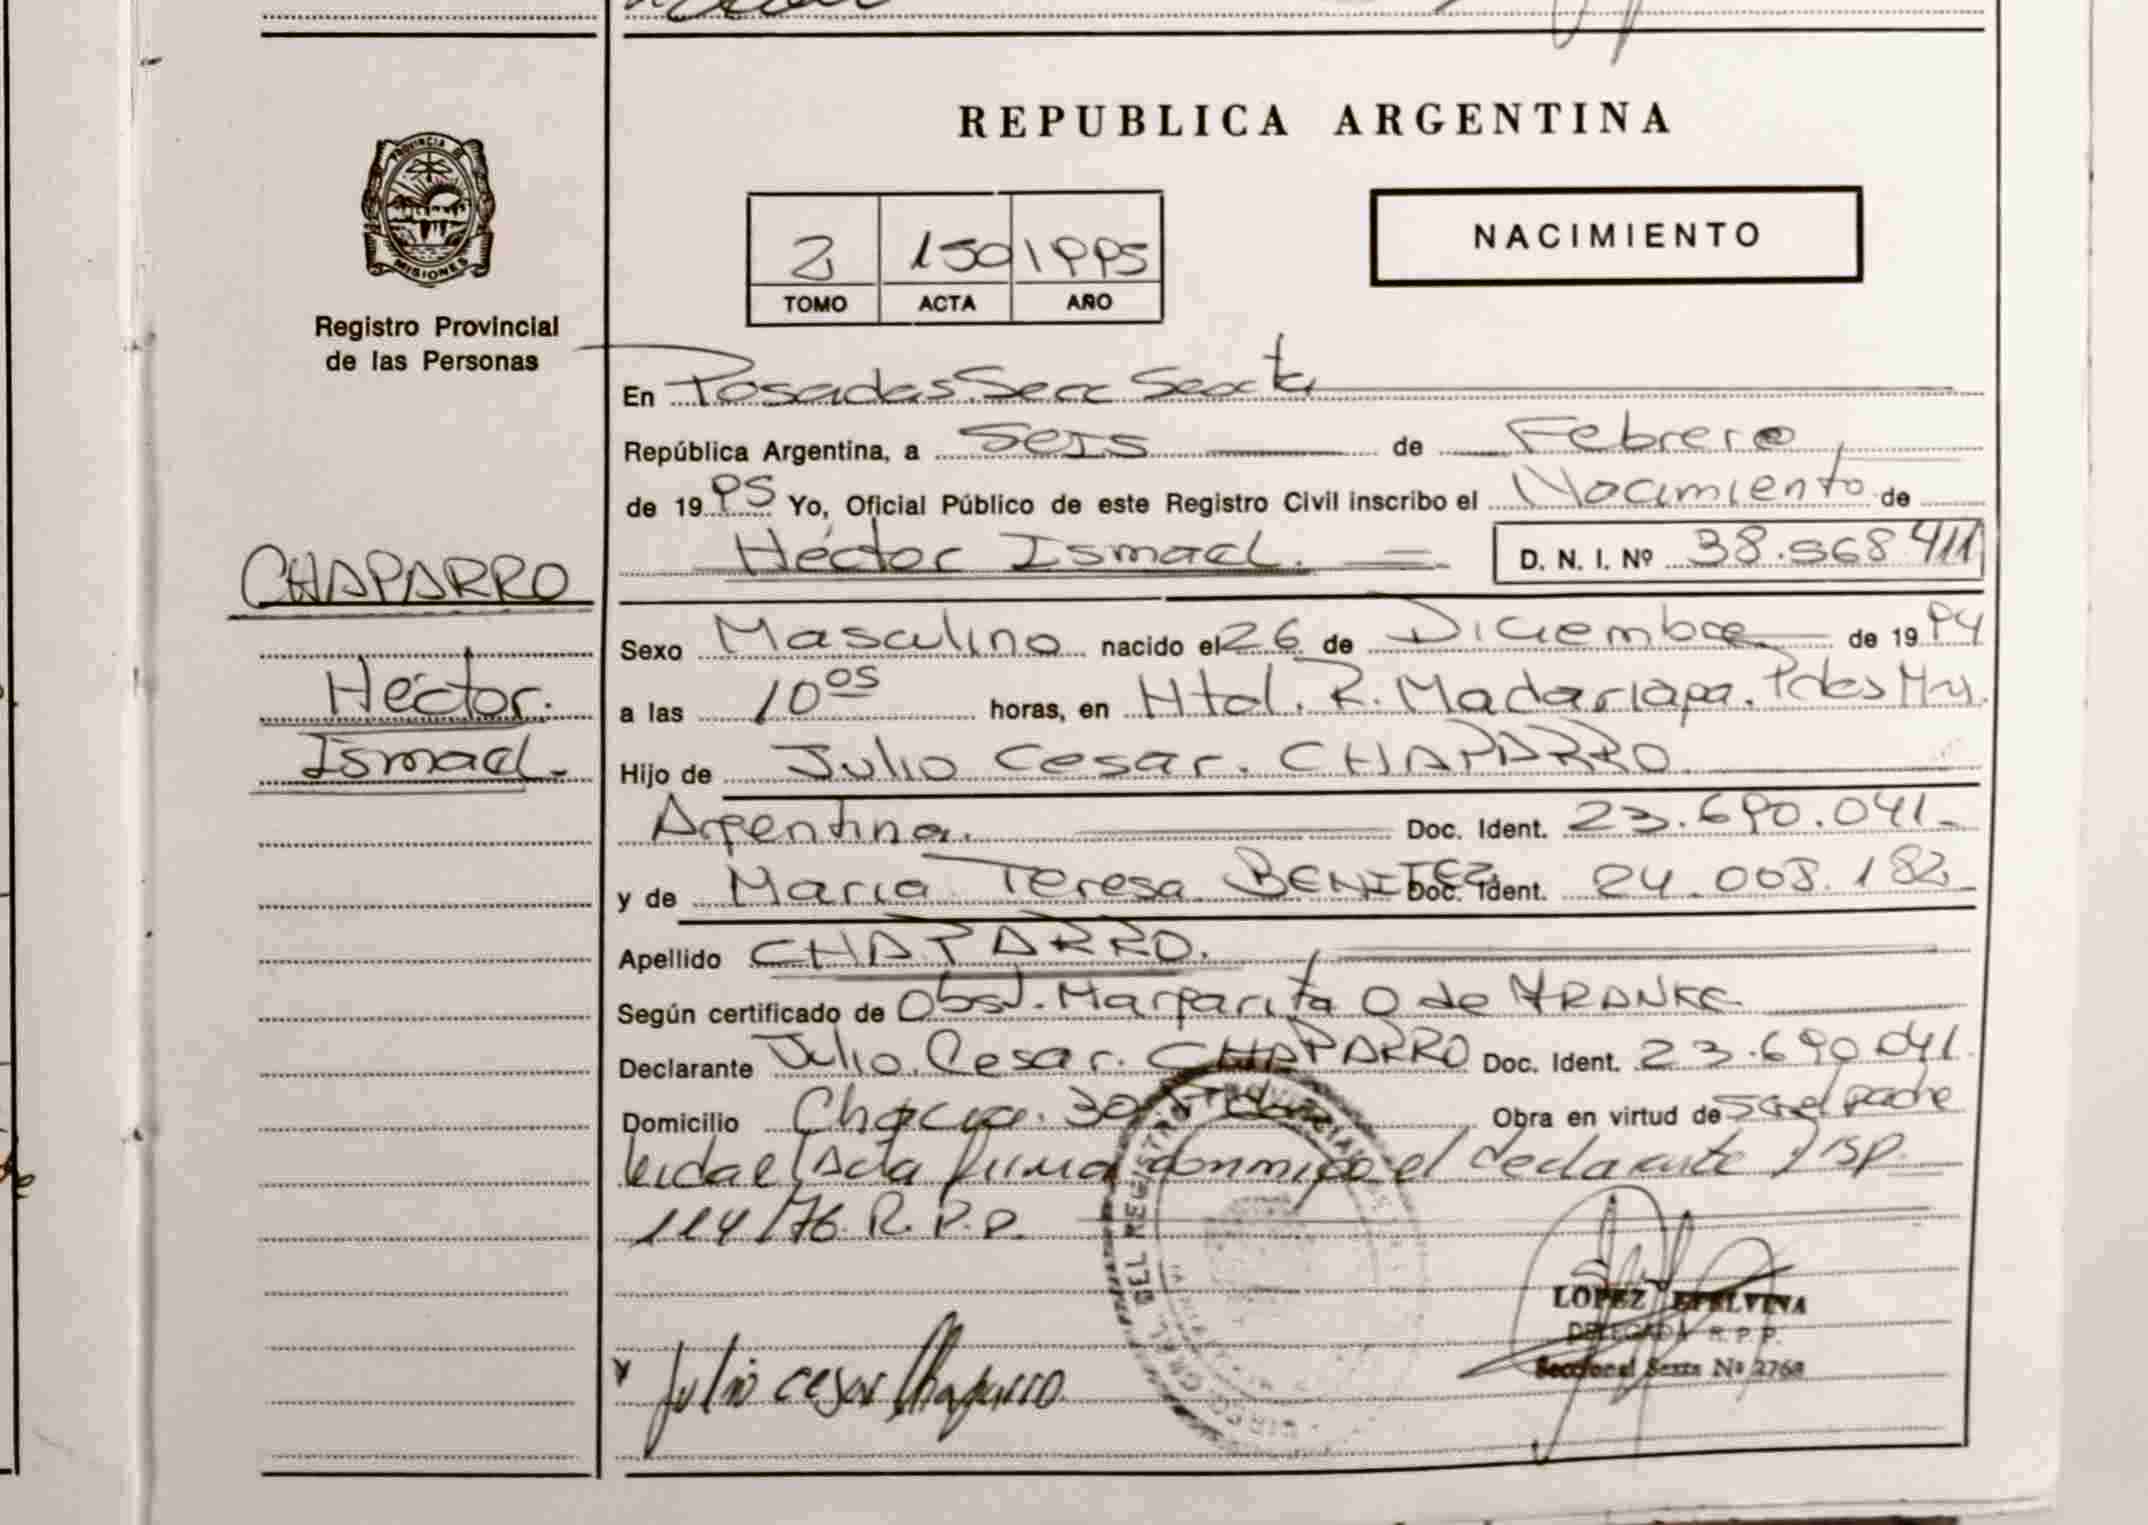 REPUBLICA ARGENTINA
PROVINCIA DE
MISIONES
Registro Provincial
de las Personas
2 150 1995
TOMO ACTA AÑO
NACIMIENTO
En Posadas Secc Sexta
República Argentina, a Seis de Febrero
de 1995 Yo, Oficial Público de este Registro Civil inscribo el Nacimiento de
Héctor Ismael. D. N. I. Nº 38.568.411
CHAPARRO
Héctor.
Ismael.
Sexo Masculino nacido el 26 de Diciembre de 1994
a las 10 05 horas, en Htal. R. Madariaga. Pdas Mns.
Hijo de Julio Cesar. CHAPARRO
Argentina. Doc. Ident. 23.690.041.
y de Maria Teresa BENITEZ Doc. Ident. 24.008.182
Apellido CHAPARRO.
Según certificado de Obst. Margarita O de
Declarante Julio Cesar. CHAPARRO Doc. Ident. 23.690.041
Domicilio Chacra. 30 Obra en virtud de ser el padre
leida el Acta firma conmigo el declarante Disp.
114/76. R. P. P.
DEL REGISTRO PROVINCIAL DE
Julio cesar Chaparro
LOPEZ ETELVINA
DELEGADA R. P. P.
Seccional Sexta Nº 2768